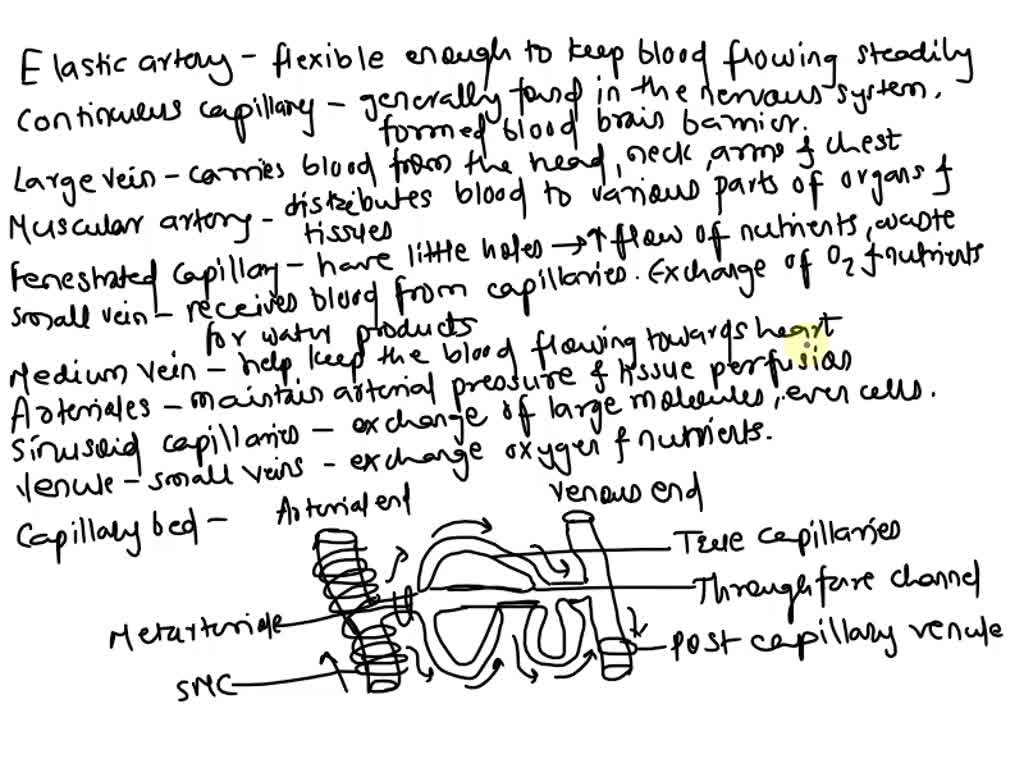 Elastic artery - flexible enough to keep blood flowing steadily
Continuous capillary - generally found in the nervous system.
formed blood brain barrier.
Large vein - carries blood from the head, neck, arms & chest
Muscular artery - distributes blood to various parts of organs &
tissues
Fenestrated capillary - have little holes → ↑ flow of nutrients, waste
Small vein - receives blood from capillaries. Exchange of O2 & nutrients
for water products
Medium vein - help keep the blood flowing towards heart
Arterioles - maintain arterial pressure & tissue perfusion
Sinusoid capillaries - exchange of large molecules, even cells.
Venule - small veins - exchange oxygen & nutrients.
Capillary bed -
Arterial end
Venous end
True capillaries
Throughfare channel
Metarteriole
Post capillary venule
SMC